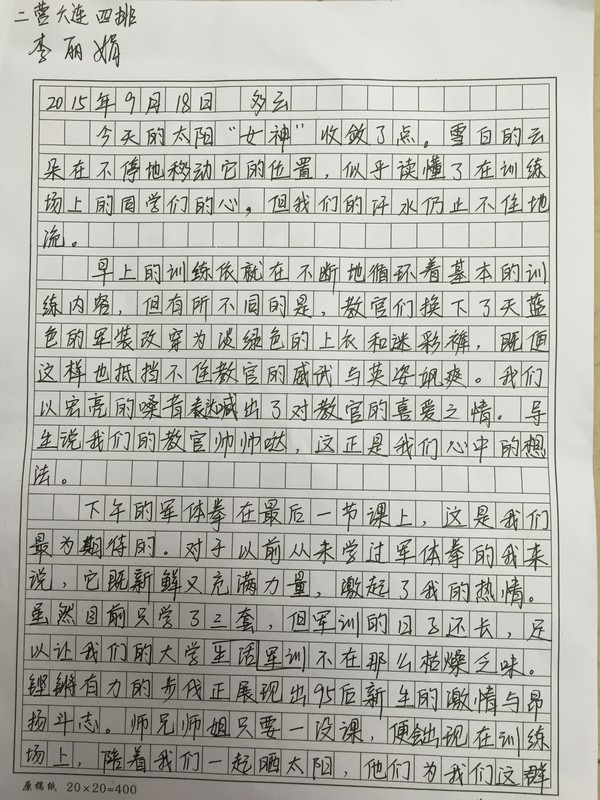 二营六连四排
李丽娟
2015年9月18日 多云
今天的太阳“女神”收敛了点。雪白的云
朵在不停地移动它的位置，似乎读懂了在训练
场上的同学们的心，但我们的汗水仍止不住地
流。
早上的训练依就在不断地循环着基本的训
练内容，但有所不同的是，教官们换下了天蓝
色的军装改穿为淡绿色的上衣和迷彩裤，既便
这样也抵挡不住教官的威武与英姿飒爽。我们
以宏亮的嗓音喊出了对教官的喜爱之情。导
生说我们的教官帅帅哒，这正是我们心中的想
法。
下午的军体拳在最后一节课上，这是我们
最为期待的。对于以前从未学过军体拳的我来
说，它既新鲜又充满力量，激起了我的热情。
虽然目前只学了三套，但军训的日子还长，足
以让我们的大学生活军训不在那么枯燥乏味。
铿锵有力的步伐正展现出95后新生的激情与昂
扬斗志。师兄师姐只要一没课，便会出现在训练
场上，陪着我们一起晒太阳，他们为我们这群
原稿纸 20×20=400